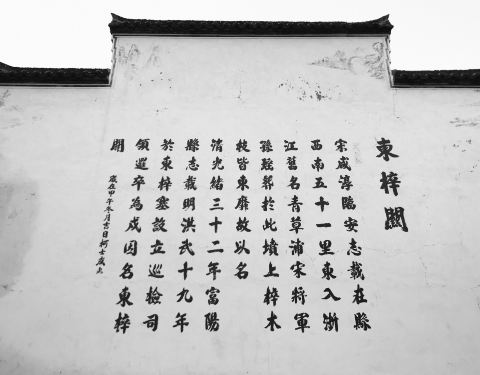 東梓關
宋咸淳臨安志載在縣
西南五十一里東入浙
江舊名青草浦宋將軍
孫瑶葬於此墳上梓木
枝皆東靡故以名
清光緒三十二年富陽
縣志載明洪武十九年
於東梓塞設立巡檢司
領邏卒為戍因名東梓
關
歲在甲午冬月吉日柯士成